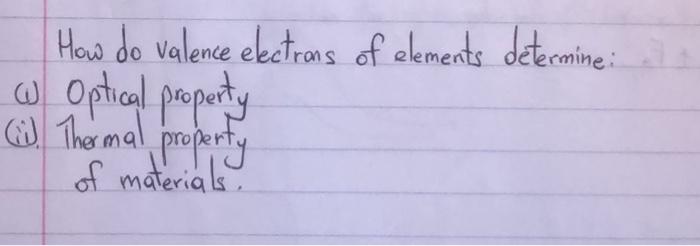 How do valence electrons of elements determine:
(i) Optical property
(ii). Thermal property
of materials.